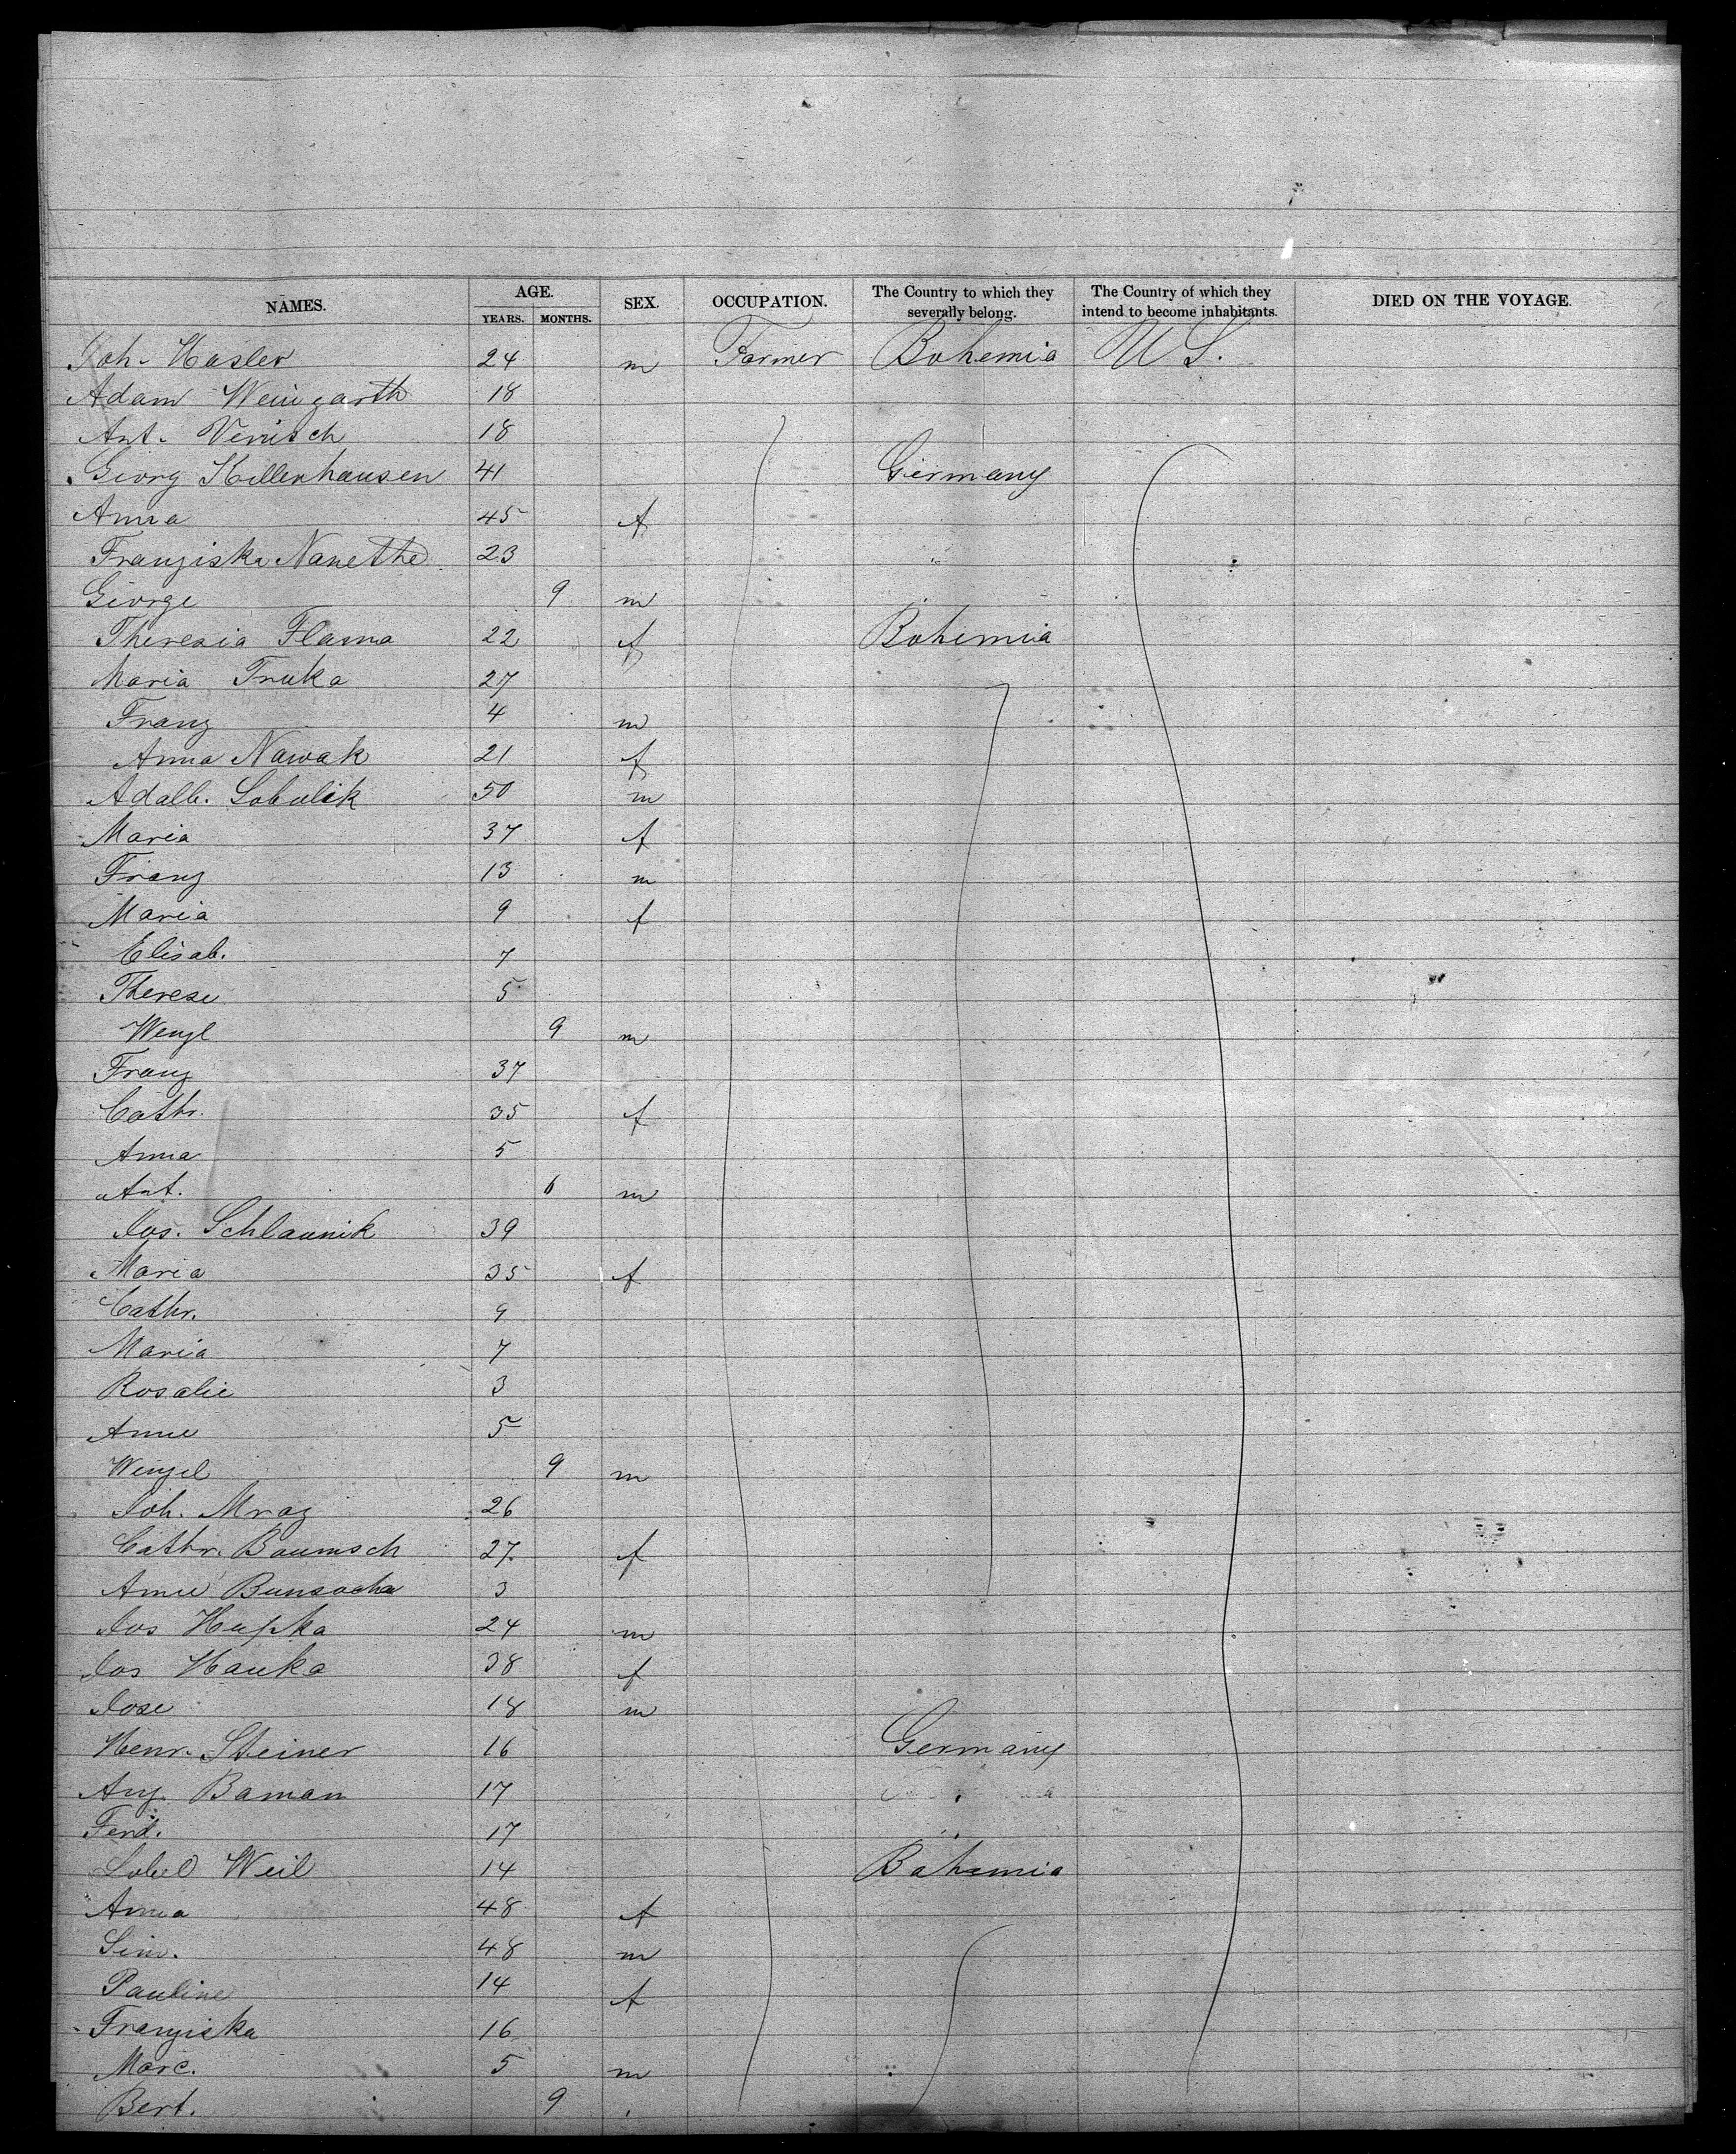 NAMES. AGE. SEX. OCCUPATION. The Country to which they severally belong. The Country of which they intend to become inhabitants. DIED ON THE VOYAGE.
YEARS. MONTHS.
Joh. Hasler 24 m Farmer Bohemia U S.
Adam Weingarth 18
Ant. Venisch 18
Georg Killenhausen 41 Germany
Anna 45 f
Franziska Nanethe 23 "
George 9 m
Theresia Flama 22 f Bohemia
Maria Truka 27
Franz 4 m
Anna Nawak 21 f
Adalb. Sobulik 50 m
Maria 37 f
Franz 13 m
Maria 9 f
Elisab. 7
Therese 5
Wenzl 9 m
Franz 37
Cathr. 35 f
Anna 5
Ant. 6 m
Jos. Schlaunik 39
Maria 35 f
Cathr. 9
Maria 7
Rosalie 3
Anne 5
Wenzel 9 m
Joh. Mraz 26
Cathr. Baumsch 27 f
Anne Bunsocha 3
Jos Hupka 24 m
Jos Hauka 38 f
Jose 18 m
Henr. Steiner 16 Germany
Aug. Baman 17
Ferd. 17 "
Lobel Weil 14 Bohemia
Anna 48 f
Sim. 48 m
Pauline 14 f
Franziska 16
Marc. 5 m
Bert. 9